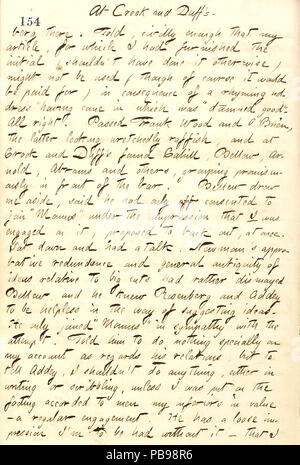 154
At Crook and Duff's.
berg there. Told, civilly enough that my
article, for which I had furnished the
initial (shouldn't have done it otherwise,)
might not be used, (though of course it would
be paid for,) in consequence of a rhyming ad-
dress having come in which was "damned good."
All right. Passed Frank Wood and O'Brien,
the latter looking wretchedly raffish, and at
Crook and Duff's found Cahill, Bellew, Ar-
nold, Abrams and others, grouping promiscu-
ously in front of the bar. Bellew drew
me aside, said he had only consented to
join "Momus" under the impression that I was
engaged on it, proposed to back out, at once.
Sat down and had a talk. Newman's appro-
bative redundence and general antiquity of
ideas relative to big cuts had rather dismayed
Bellew, and he knew Rosenberg and Addey
to be helpless in the way of suggesting ideas.
He only joined "Momus" in sympathy with the
attempt. Told him to do nothing specially on
my account as regards his relations but to
tell Addey, I shouldn't do anything, either in
writing or scribbling, unless I was put on the
footing accorded to men my inferiors in value
— a regular engagement. He has a loose im-
pression I'm to be had without it — that I
alamy
PB98R6